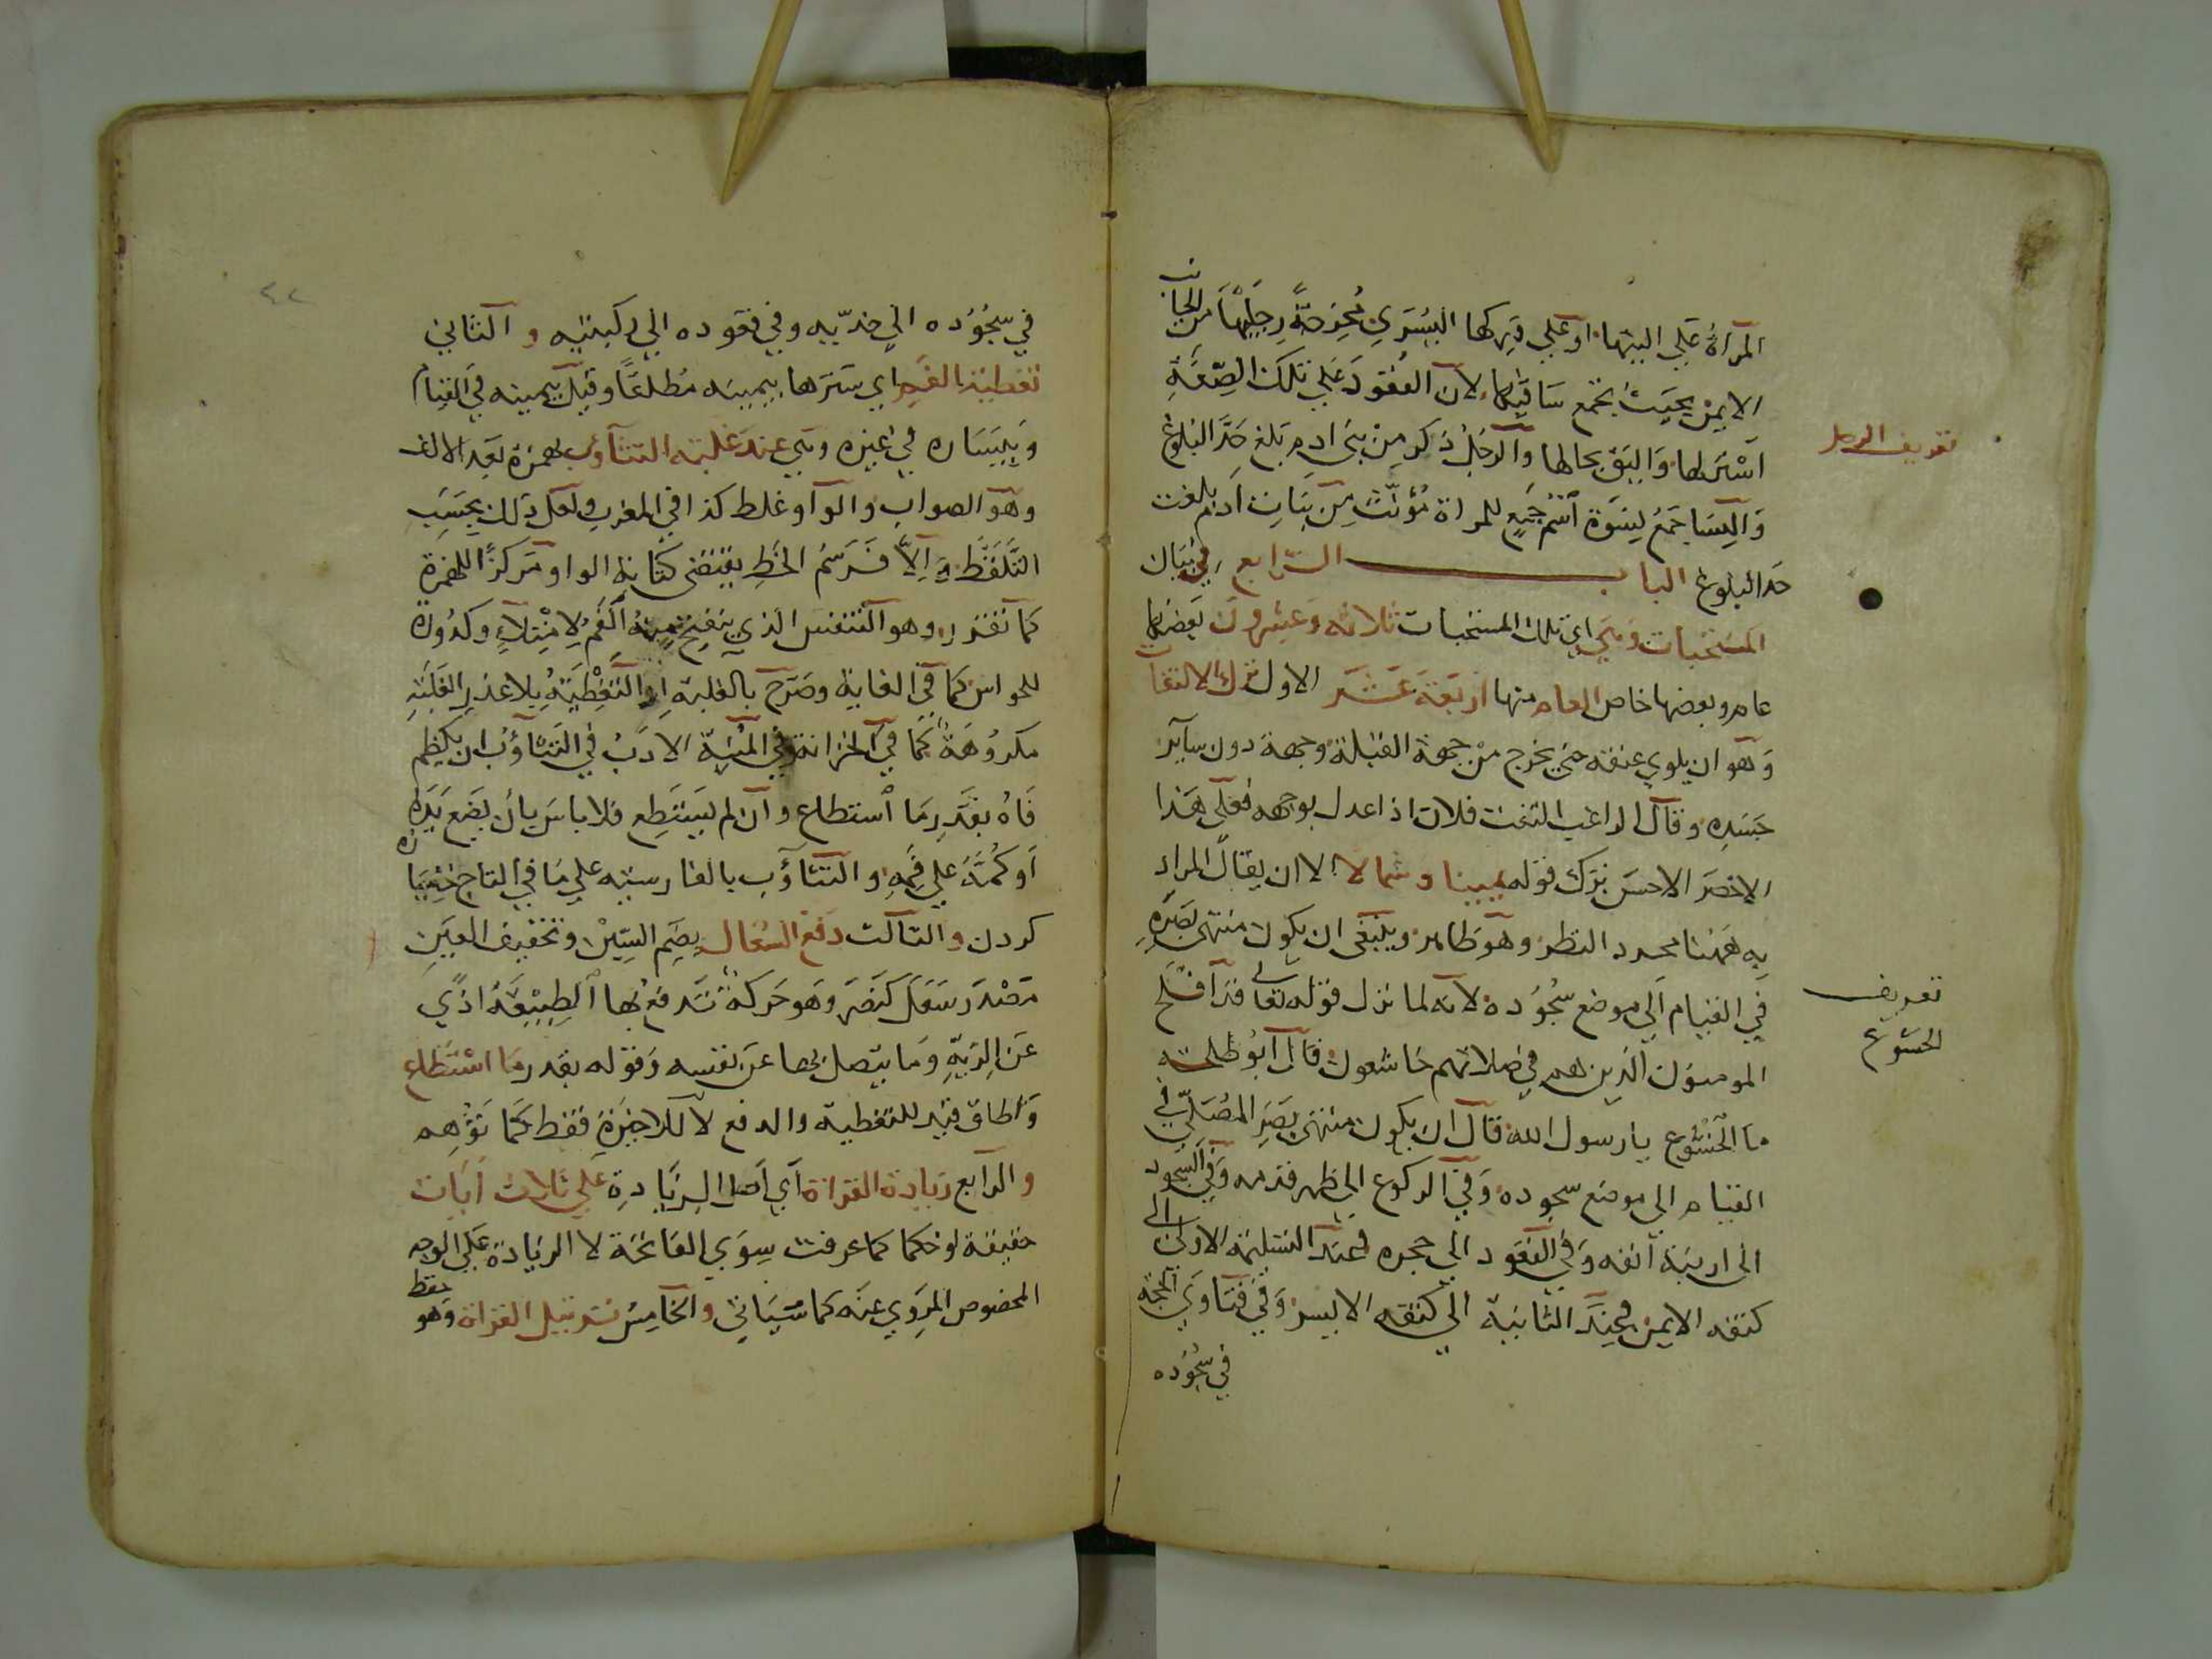 المرأة علي اليتها او علي وركها اليسري مخرجة رجليها من الجانب
الايمن بحيث يجتمع ساقيها لان القعود علي تلك الصفة
استر لها واليق بحالها والرجل ذكر من بني ادم بلغ حد البلوغ
تعريف الرجل
والنسا جمع نسوة اسم جمع للمراة مؤنث من بنات ادم بلغت
حد البلوغ الباب الرابع في بيان
المستحبات وهي اي تلك المستحبات ثلاثه وعشرون بعضها
عام وبعضها خاص العام منها اربعة عشر الاول ترك الالتفا
وهو ان يلوي عنقه حتي يخرج من جهة القبلة وجهه دون ساير
جسده وقال الراغب التفت فلان اذا عدل بوجهه فعلي هذا
الاخصر الاحسن ترك قوله يمينا وشمالا الا ان يقال المراد
به ههنا مجرد النظر وهو ظاهر وينبغي ان يكون منتهي بصره
في القيام الي موضع سجوده لانه لما نزل قوله تعالي قد افلح
تعريف
الخشوع
المومنون الذين هم في صلاتهم خاشعون قال ابو طلحة
ما الخشوع يا رسول الله قال ان يكون منتهي بصر المصلي في
القيام الي موضع سجوده وفي الركوع الي ظهر قدمه وفي السجود
الي ارنبة انفه وفي القعود الي حجره وعند التسليمة الاولي الي
كتفه الايمن وعند الثانية الي كتفه الايسر وفي فتاوي الحجة
في سجوده
٤٢
في سجوده الي خديه وفي قعوده الي ركبتيه والثاني
تغطية الفم اي سترها بيمينه مطلقا وقيل بيمينه في القيام
وبيساره في غيره وهي عند غلبة التثاؤب بهمزة بعد الالف
وهو الصواب والواو غلط كذا في المغرب ولعل ذلك بحسب
التلفظ والا فرسم الخط يقتضي كتابة الواو مركزا للهمزة
كما تقرر وهو التنفس الذي ينفتح منه الفم لامتلاء وكدورة
للحواس كما في الغاية وصرح بالغلبة اذ التغطية بلا عذر الغلبة
مكروهة كما في الخزانة وفي المنية الادب في التثاؤب ان يكظم
فاه بقدر ما استطاع وان لم يستطع فلا باس بان يضع يده
او كمه علي فمه والتثاؤب بالفارسية علي ما في التاج خميازه
كردن والثالث دفع السعال بضم السين وتخفيف العين
مصدر سعل كنصر وهو حركة تدفع بها الطبيعة اذي
عن الرية وما يتصل بها عن نفسه وقوله بقدر ما استطاع
واطاق قيد للتغطية والدفع لا للاخيرة فقط كما توهم
والرابع زيادة القراة اي اصل الزيادة علي ثلاث ايات
حقيقة او حكما كما عرفت سوي الفاتحة لا الزيادة علي الوجه
المخصوص المروي عنه كما سيأتي والخامس ترتيل القراة وهو حفظ